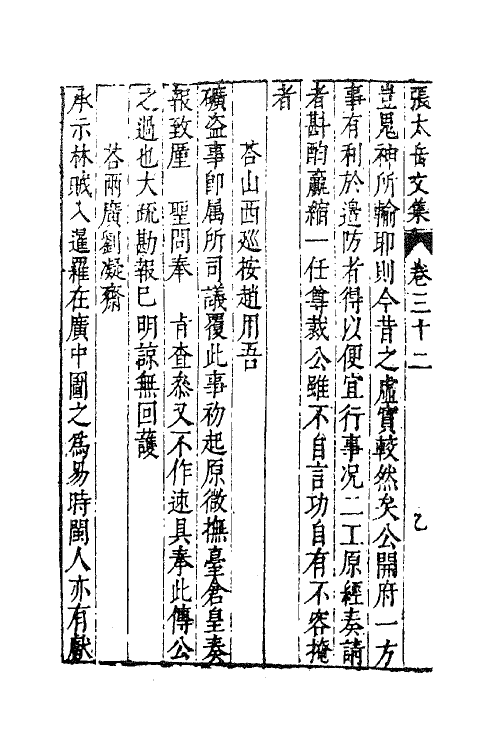 張太岳文集　卷三十二　乙
豈鬼神所輸耶則今昔之虛實較然矣公開府一方
事有利於邊防者得以便宜行事况二工原經奏請
者斟酌羸縮一任尊裁公雖不自言功自有不容掩
者
荅山西廵按趙用吾
礦盗事卽属所司議覆此事初起原微撫臺倉皇奏
報致厪　聖問奉　㫖查叅又不作速具奉此傳公
之過也大疏勘報已明諒無回護
荅兩廣劉凝齋
承示林賊入暹羅在廣中圖之爲易時閩人亦有獻